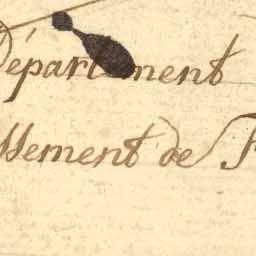 Département
ssement de F